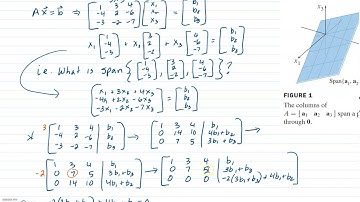 A x⃗ = b⃗ ⇒ [1 3 4; -4 2 -6; -3 -2 -7] [x₁; x₂; x₃] = [b₁; b₂; b₃]
x₁ [1; -4; -3] + x₂ [3; 2; -2] + x₃ [4; -6; -7] = [b₁; b₂; b₃]
i.e. What is Span { [1; -4; -3], [3; 2; -2], [4; -6; -7] } ?
[x₁ + 3x₂ + 4x₃; -4x₁ + 2x₂ - 6x₃; -3x₁ - 2x₂ - 7x₃] = [b₁; b₂; b₃]
3 [1 3 4 | b₁; -4 2 -6 | b₂; -3 -2 -7 | b₃] → [1 3 4 | b₁; 0 14 10 | 4b₁+b₂; 0 7 5 | 3b₁+b₃] →
-2 [1 3 4 | b₁; 0 7 5 | 3b₁+b₃; 0 14 10 | 4b₁+b₂] → [1 3 4 | b₁; 0 7 5 | 3b₁+b₃; 0 0 0 | -2(3b₁+b₃)+4b₁+b₂]
x₃
Span{a₁, a₂
FIGURE 1
The columns of
A = [a₁ a₂ a₃] span a p
through 0.